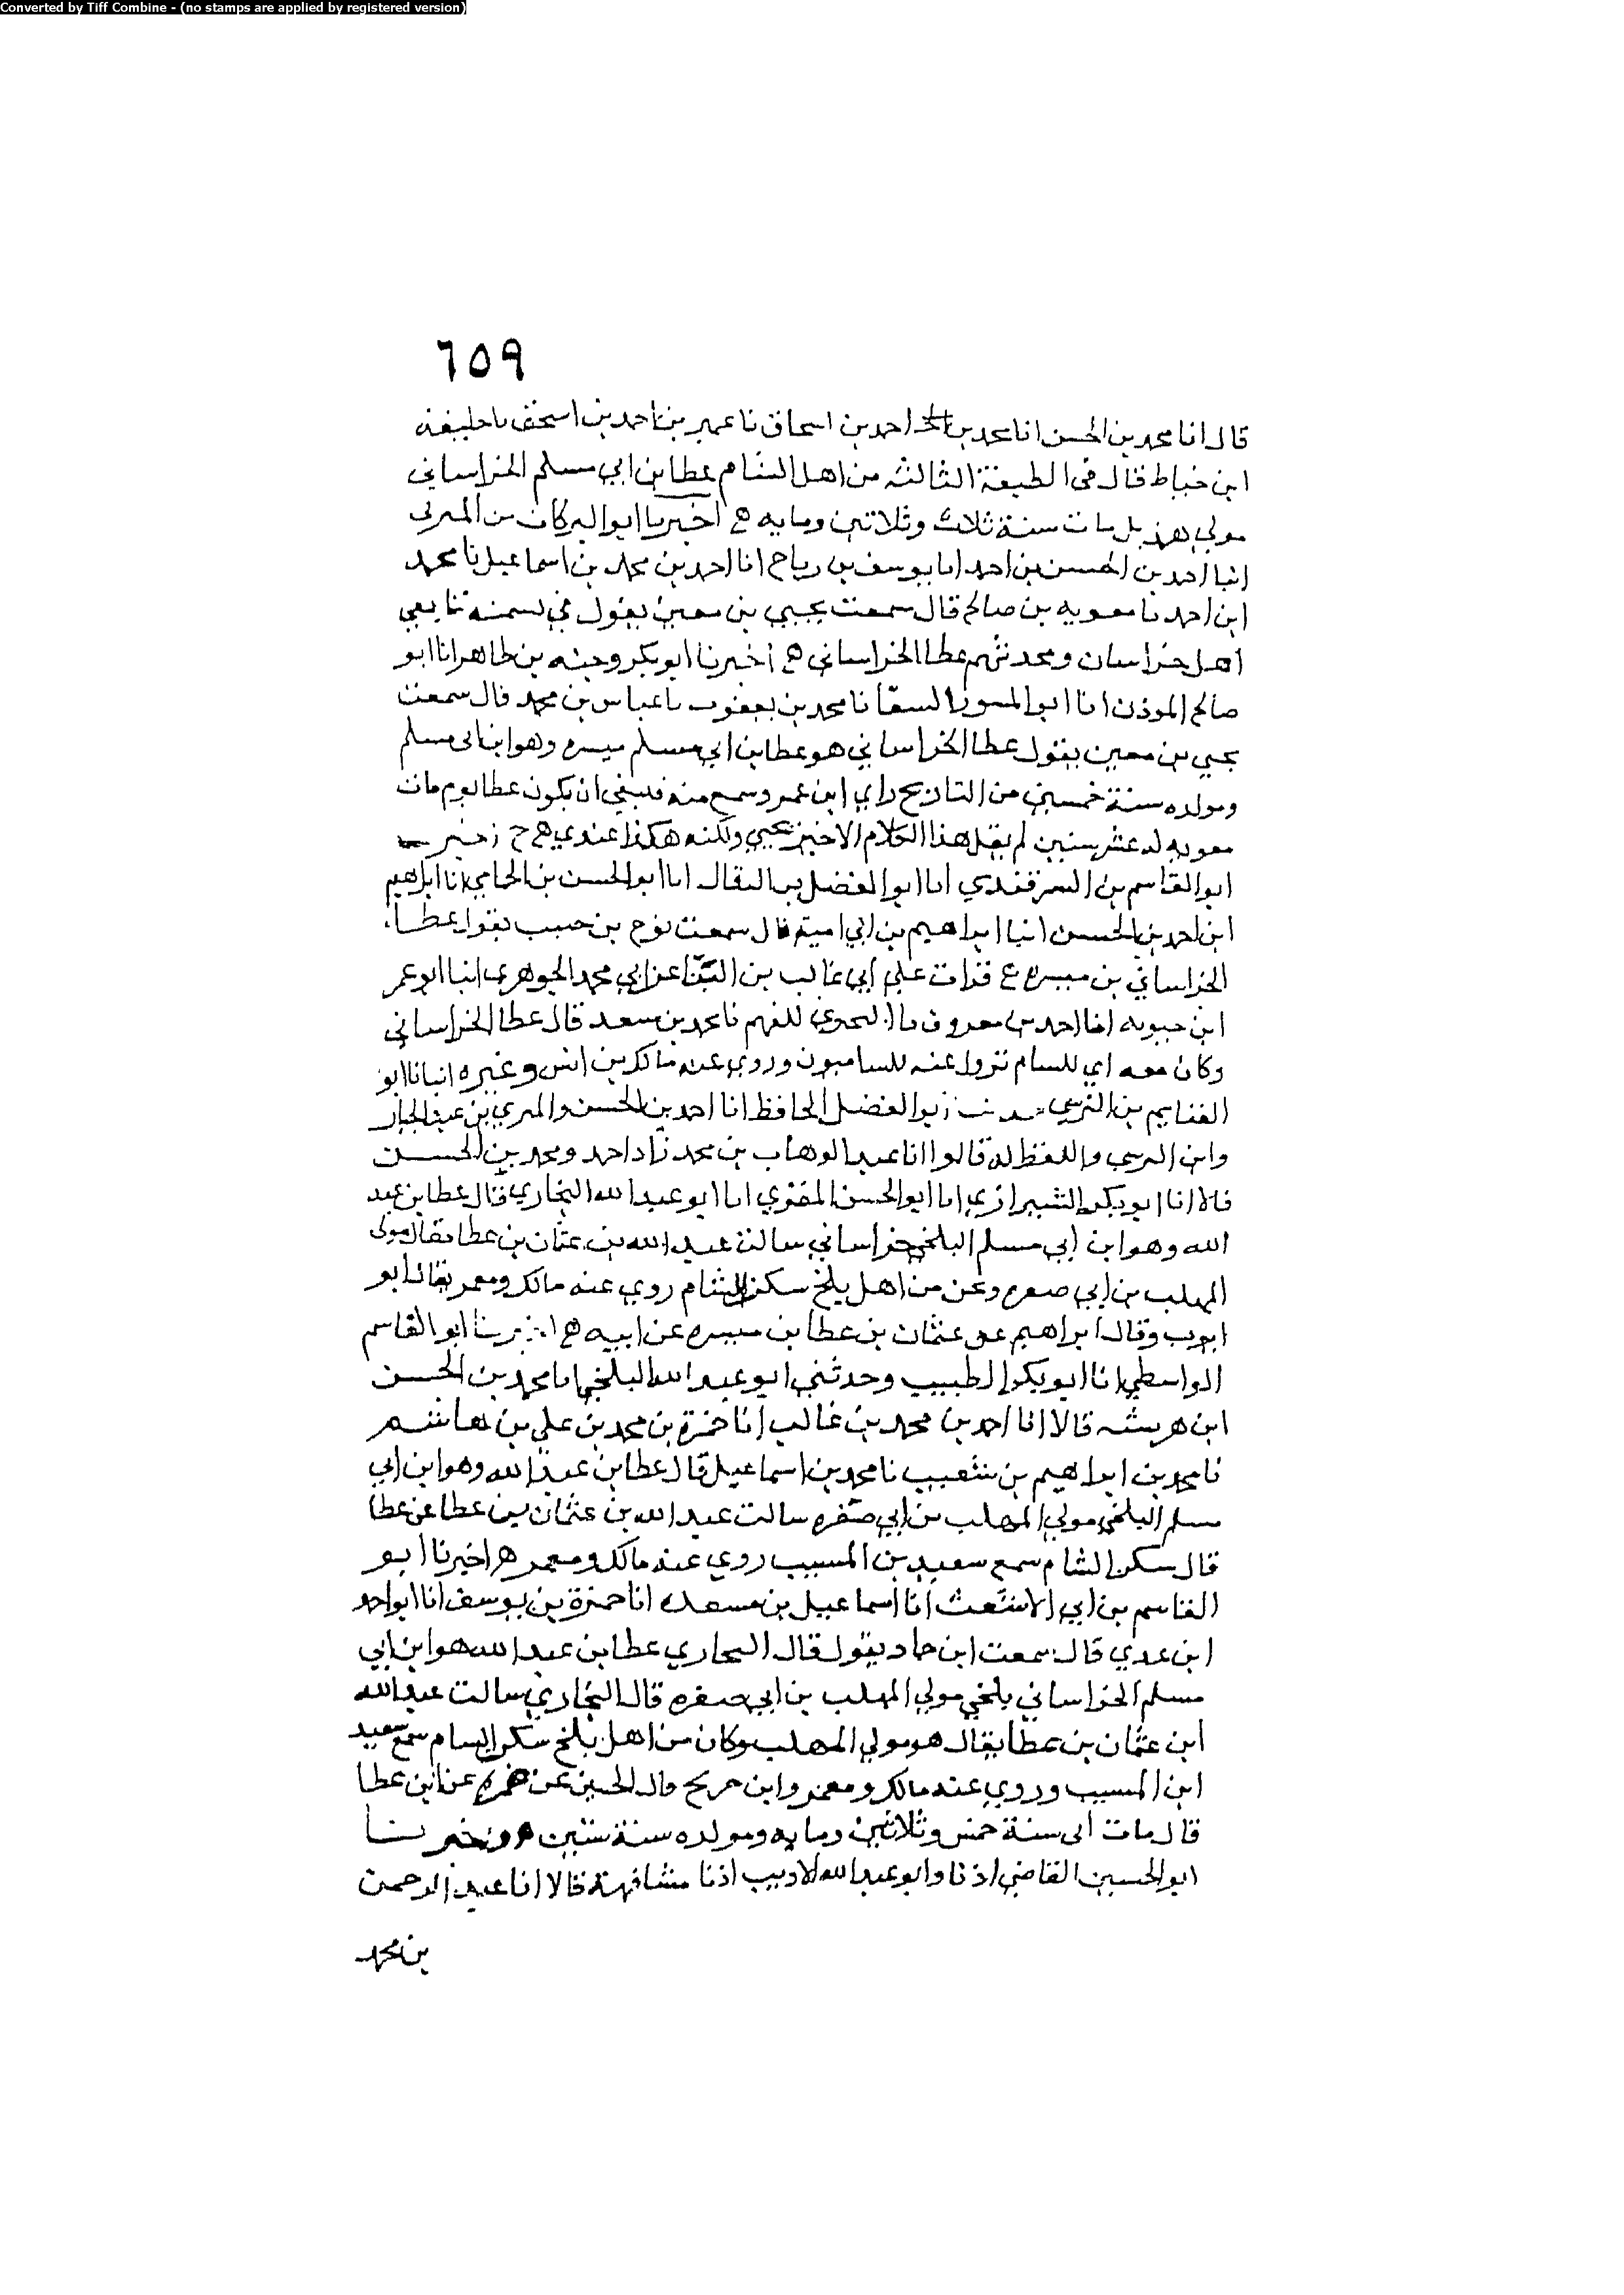 Converted by Tiff Combine - (no stamps are applied by registered version)
٦٥٩
قال انا محمد بن الحسن انا محمد بن احمد بن اسحاق نا عمر بن احمد بن اسحق نا خليفة
ابن خياط قال في الطبقة الثالثة من اهل الشام عطا بن ابي مسلم الخراساني
مولي هذيل مات سنة ثلاث وثلاثين ومايه اخبرنا ابو البركات بن
انبا احمد بن الحسن بن احمد انا يوسف بن رباح انا احمد بن محمد بن اسماعيل نا محمد
ابن احمد نا معويه بن صالح قال سمعت يحيي بن معين يقول في تسمية تابعي
اهل خراسان ومحدثهم عطا الخراساني اخبرنا ابو بكر وجيه بن طاهر انا ابو
صالح الموذن انا ابو السقا نا محمد بن يعقوب نا عباس بن محمد قال سمعت
يحيي بن معين يقول عطا الخراساني هو عطا بن ابي مسلم ميسره وهو ابن ابي مسلم
ومولده سنة خمسين من التاريخ راي ابن عمر وسمع منه فينبغي ان يكون عطا يوم مات
معويه له عشر سنين لم يقل هذا الكلام الاخير يحيي ولكنه هكذا عندي
ابو القاسم بن السمرقندي انا ابو الفضل بن البقال انا ابو الحسن بن الحمامي انا ابراهيم
ابن احمد بن الحسن انبا ابراهيم بن ابي امية قال سمعت نوح بن حبيب يقول عطا
الخراساني بن ميسره قرات علي ابي غالب بن البنا عن ابي محمد الجوهري انبا ابو عمر
ابن حيويه انا احمد بن معروف نا الحسين بن الفهم نا محمد بن سعد قال عطا الخراساني
وكان روي عنه مالك بن انس وغيره انبانا ابو
الغنايم بن النرسي ابو الفضل الحافظ انا احمد بن الحسن بن عبد الجبار
وابن النرسي واللفظ له قالوا انا عبد الوهاب بن محمد زاد احمد ومحمد بن الحسن
قالا انا ابو بكر الشيرازي انا ابو الحسن المقري انا ابو عبد الله البخاري قال عطا بن عبد
الله وهو ابن ابي مسلم البلخي خراساني سالت عبد الله بن عثمان بن عطا فقال مولي
المهلب بن ابي صفره ونحن من اهل بلخ سكن الشام روي عنه مالك ومعمر يقال ابو
ايوب وقال ابراهيم عن عثمان بن عطا بن ميسره عن ابيه اخبرنا ابو القاسم
الواسطي انا ابو بكر الخطيب وحدثني ابو عبد الله البلخي انا محمد بن الحسن
ابن هريشه قالا انا احمد بن محمد بن غالب انا حمزة بن محمد بن علي بن هاشم
نا محمد بن ابراهيم بن شعيب نا محمد بن اسماعيل قال عطا بن عبد الله وهو ابن ابي
مسلم البلخي مولي المهلب بن ابي صفره سالت عبد الله بن عثمان بن عطا عن عطا
قال سكن الشام سمع سعيد بن المسيب روي عنه مالك ومعمر اخبرنا ابو
القاسم بن ابي الاشعث انا اسماعيل بن مسعده انا حمزة بن يوسف انا ابو احمد
ابن عدي قال سمعت ابن حماد يقول قال البخاري عطا بن عبد الله هو ابن ابي
مسلم الخراساني بلخي مولي المهلب بن ابي صفره قال البخاري سالت عبد الله
ابن عثمان بن عطا فقال هو مولي المهلب وكان من اهل بلخ سكن الشام سمع سعيد
ابن المسيب وروي عنه مالك ومعمر وابن جريج قال الحسن عن ضمره عن ابن عطا
قال مات ابي سنة خمس وثلاثين ومايه ومولده سنة ستين اخبرنا
ابو الحسين القاضي اذنا وابو عبد الله الاديب اذنا مشافهة قالا انا عبد الرحمن
بن محمد